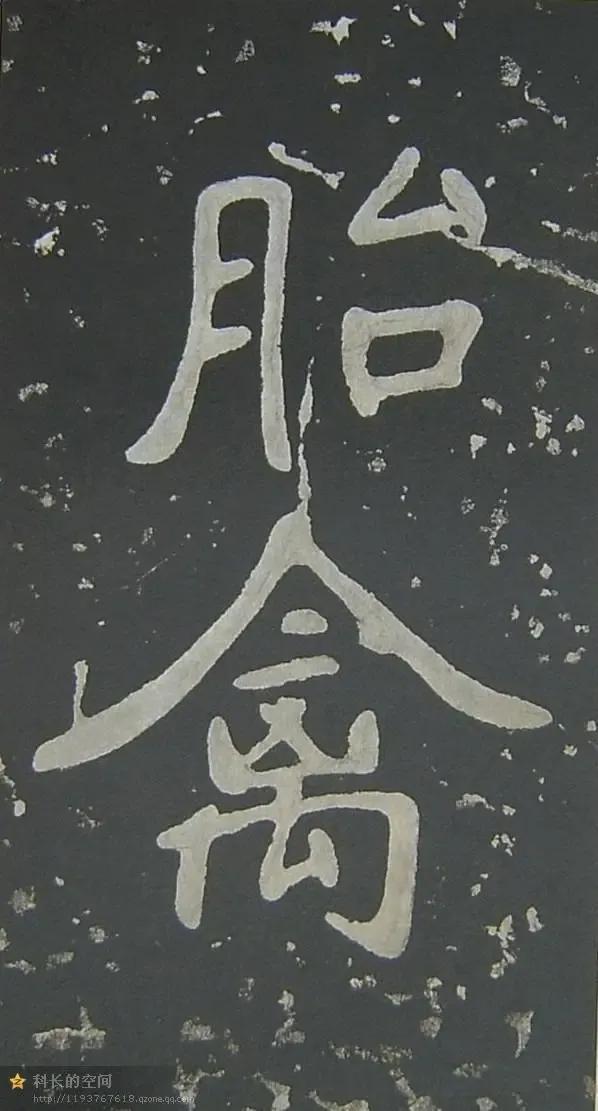 胎
禽
科长的空间
http://1193767618.qzone.qq.com